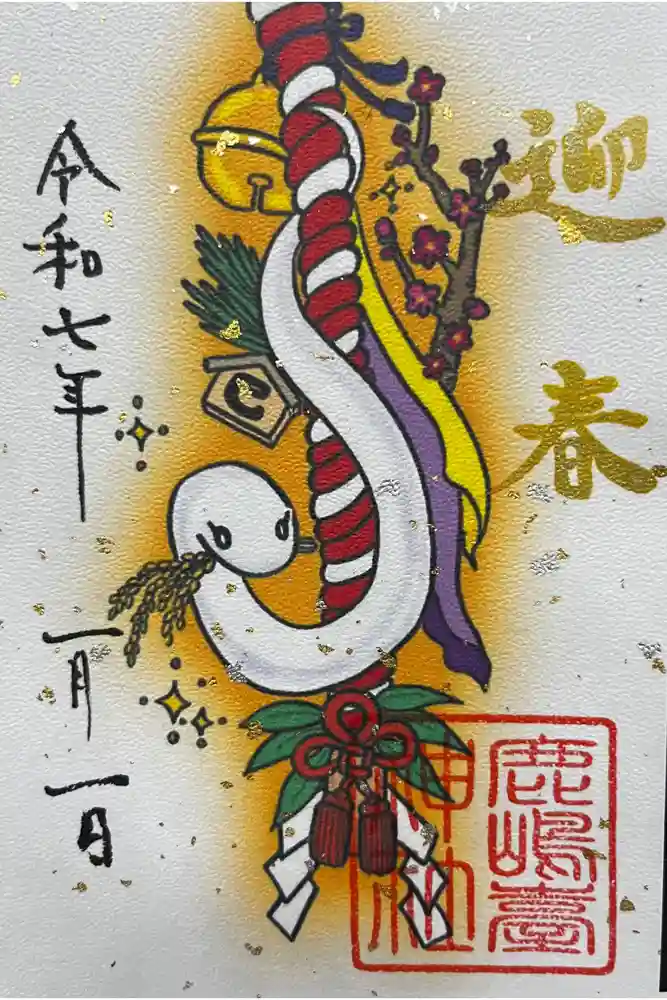 迎春
鹿嶋臺
神社
令和七年 一月一日